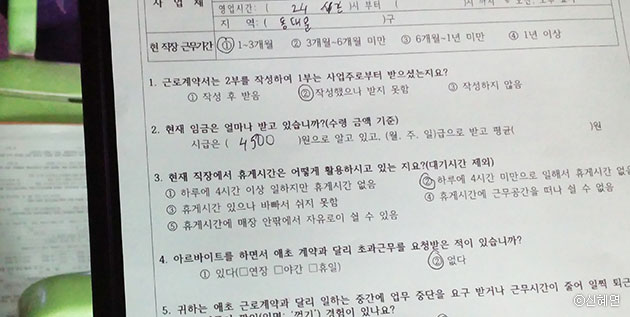 사 업 체
영업시간: ( 24 시간 )시 부터 (
지 역: ( 동대문 )구
현 직장 근무기간 ① 1~3개월 ② 3개월~6개월 미만 ③ 6개월~1년 미만 ④ 1년 이상
1. 근로계약서는 2부를 작성하여 1부는 사업주로부터 받으셨는지요?
① 작성 후 받음 ② 작성했으나 받지 못함 ③ 작성하지 않음
2. 현재 임금은 얼마나 받고 있습니까?(수령 금액 기준)
시급은 ( 4500 )원으로 알고 있고, (월, 주, 일)급으로 받고 평균( )원
3. 현재 직장에서 휴게시간은 어떻게 활용하시고 있는 지요?(대기시간 제외)
① 하루에 4시간 이상 일하지만 휴게시간 없음 ② 하루에 4시간 미만으로 일해서 휴게시간 없음
③ 휴게시간 있으나 바빠서 쉬지 못함 ④ 휴게시간에 근무공간을 떠나 쉴 수 없음
⑤ 휴게시간에 매장 안팎에서 자유로이 쉴 수 있음
4. 아르바이트를 하면서 애초 계약과 달리 초과근무를 요청받은 적이 있습니까?
① 있다(□연장 □야간 □휴일) ② 없다
5. 귀하는 애초 근로계약과 달리 일하는 중간에 업무 중단을 요구 받거나 근무시간이 줄어 일찍 퇴근
경험이 있나요?
©신혜연